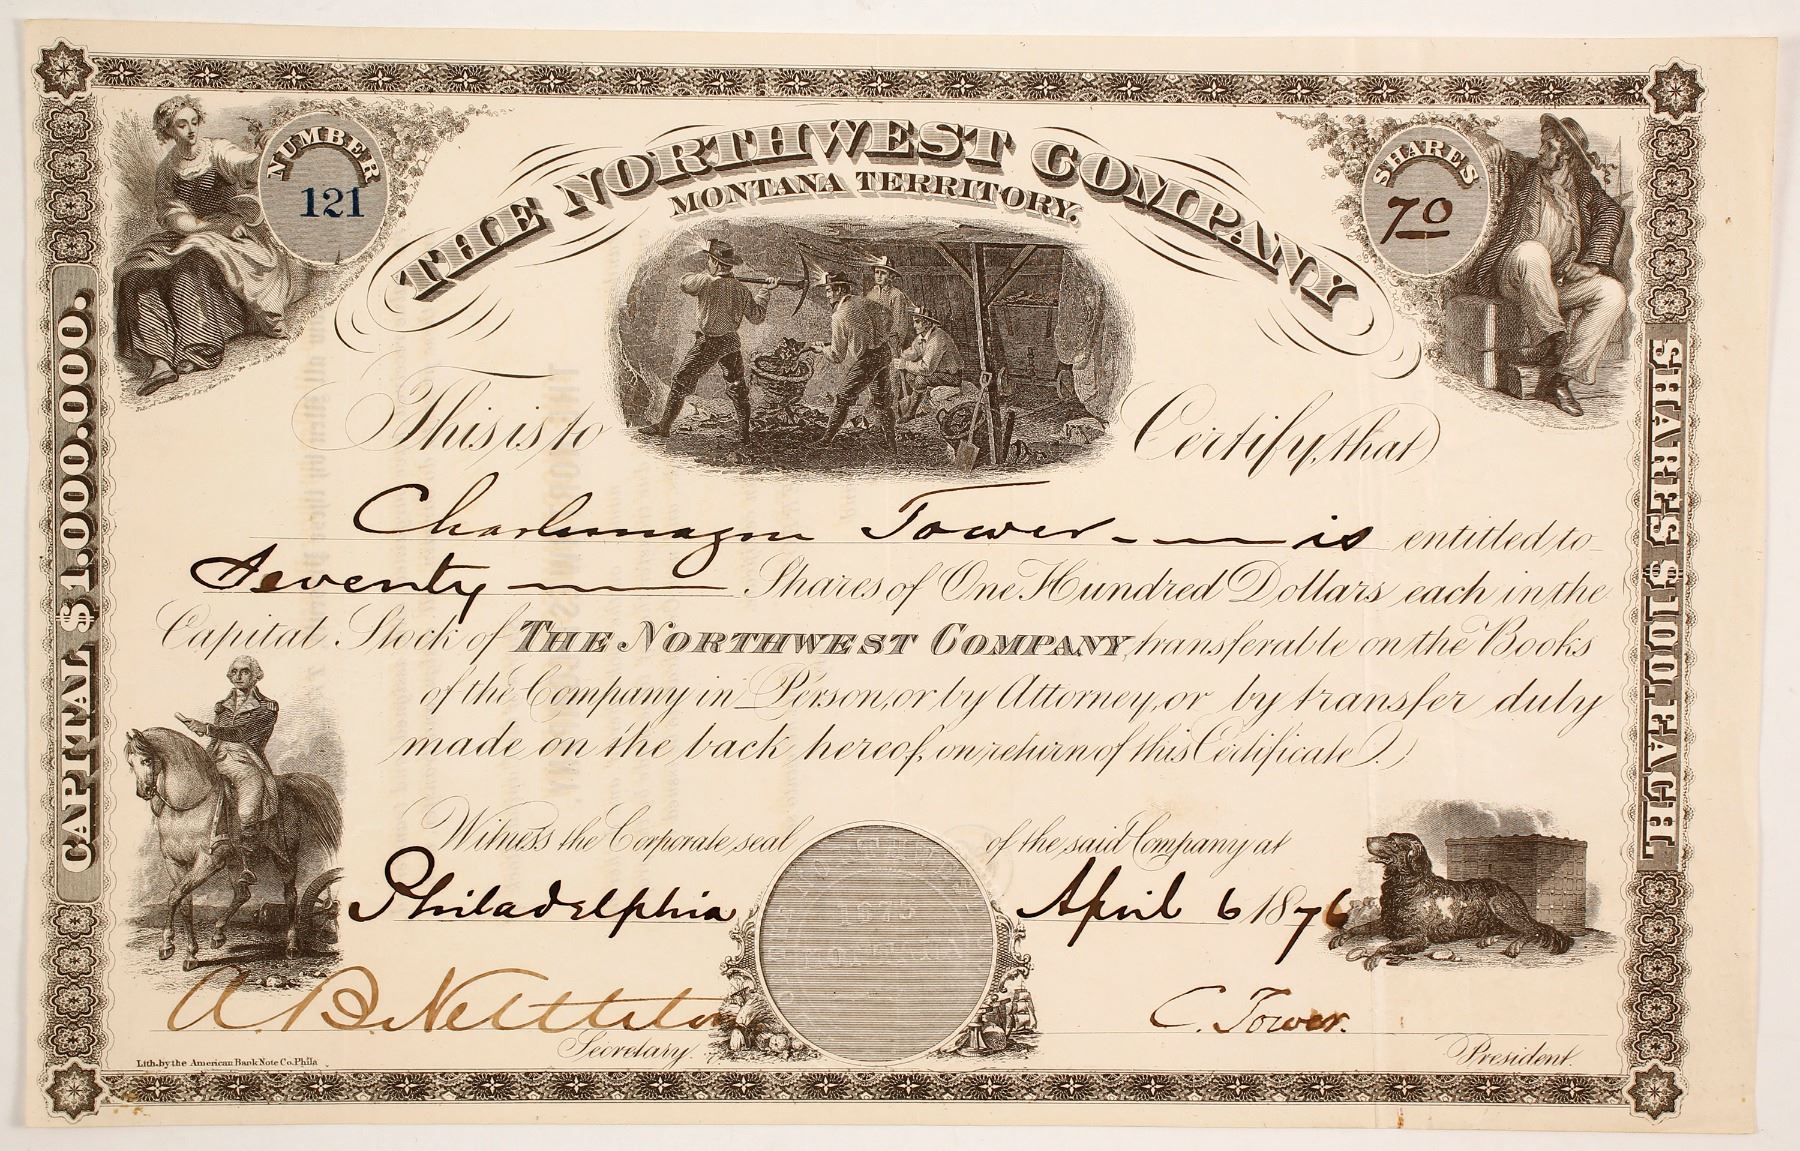 NUMBER
121
THE NORTHWEST COMPANY
MONTANA TERRITORY.
SHARES
70
CAPITAL $1.000.000.
SHARES $100 EACH
This is to Certify, that
Charlemagne Tower is entitled to
Seventy Shares of One Hundred Dollars each in the
Capital Stock of THE NORTHWEST COMPANY, transferable on the Books
of the Company in Person, or by Attorney, or by transfer duly
made on the back hereof, on return of this Certificate.
Witness the Corporate seal of the said Company at
Philadelphia April 6 1876
1875
A. B. Nettleton C. Tower.
Secretary. President.
Lith. by the American Bank Note Co. Phila